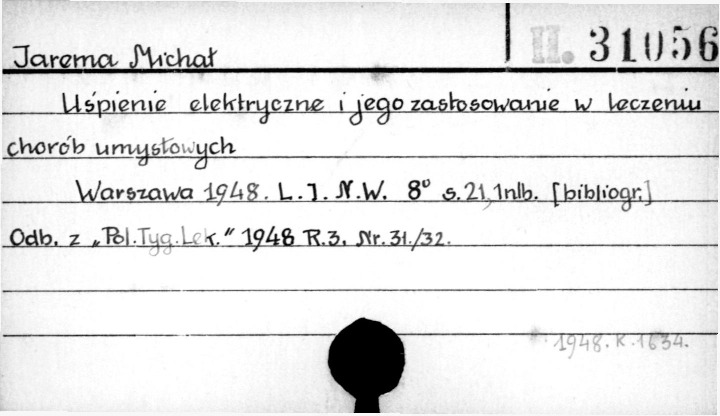 II. 31056
Jarema Michał
Uśpienie elektryczne i jego zastosowanie w leczeniu
chorób umysłowych
Warszawa 1948. L.I.N.W. 8° s.21,1nlb. [bibliogr.]
Odb. z „Pol.Tyg.Lek.” 1948 R.3. Nr.31./32.
1948.K.1634.